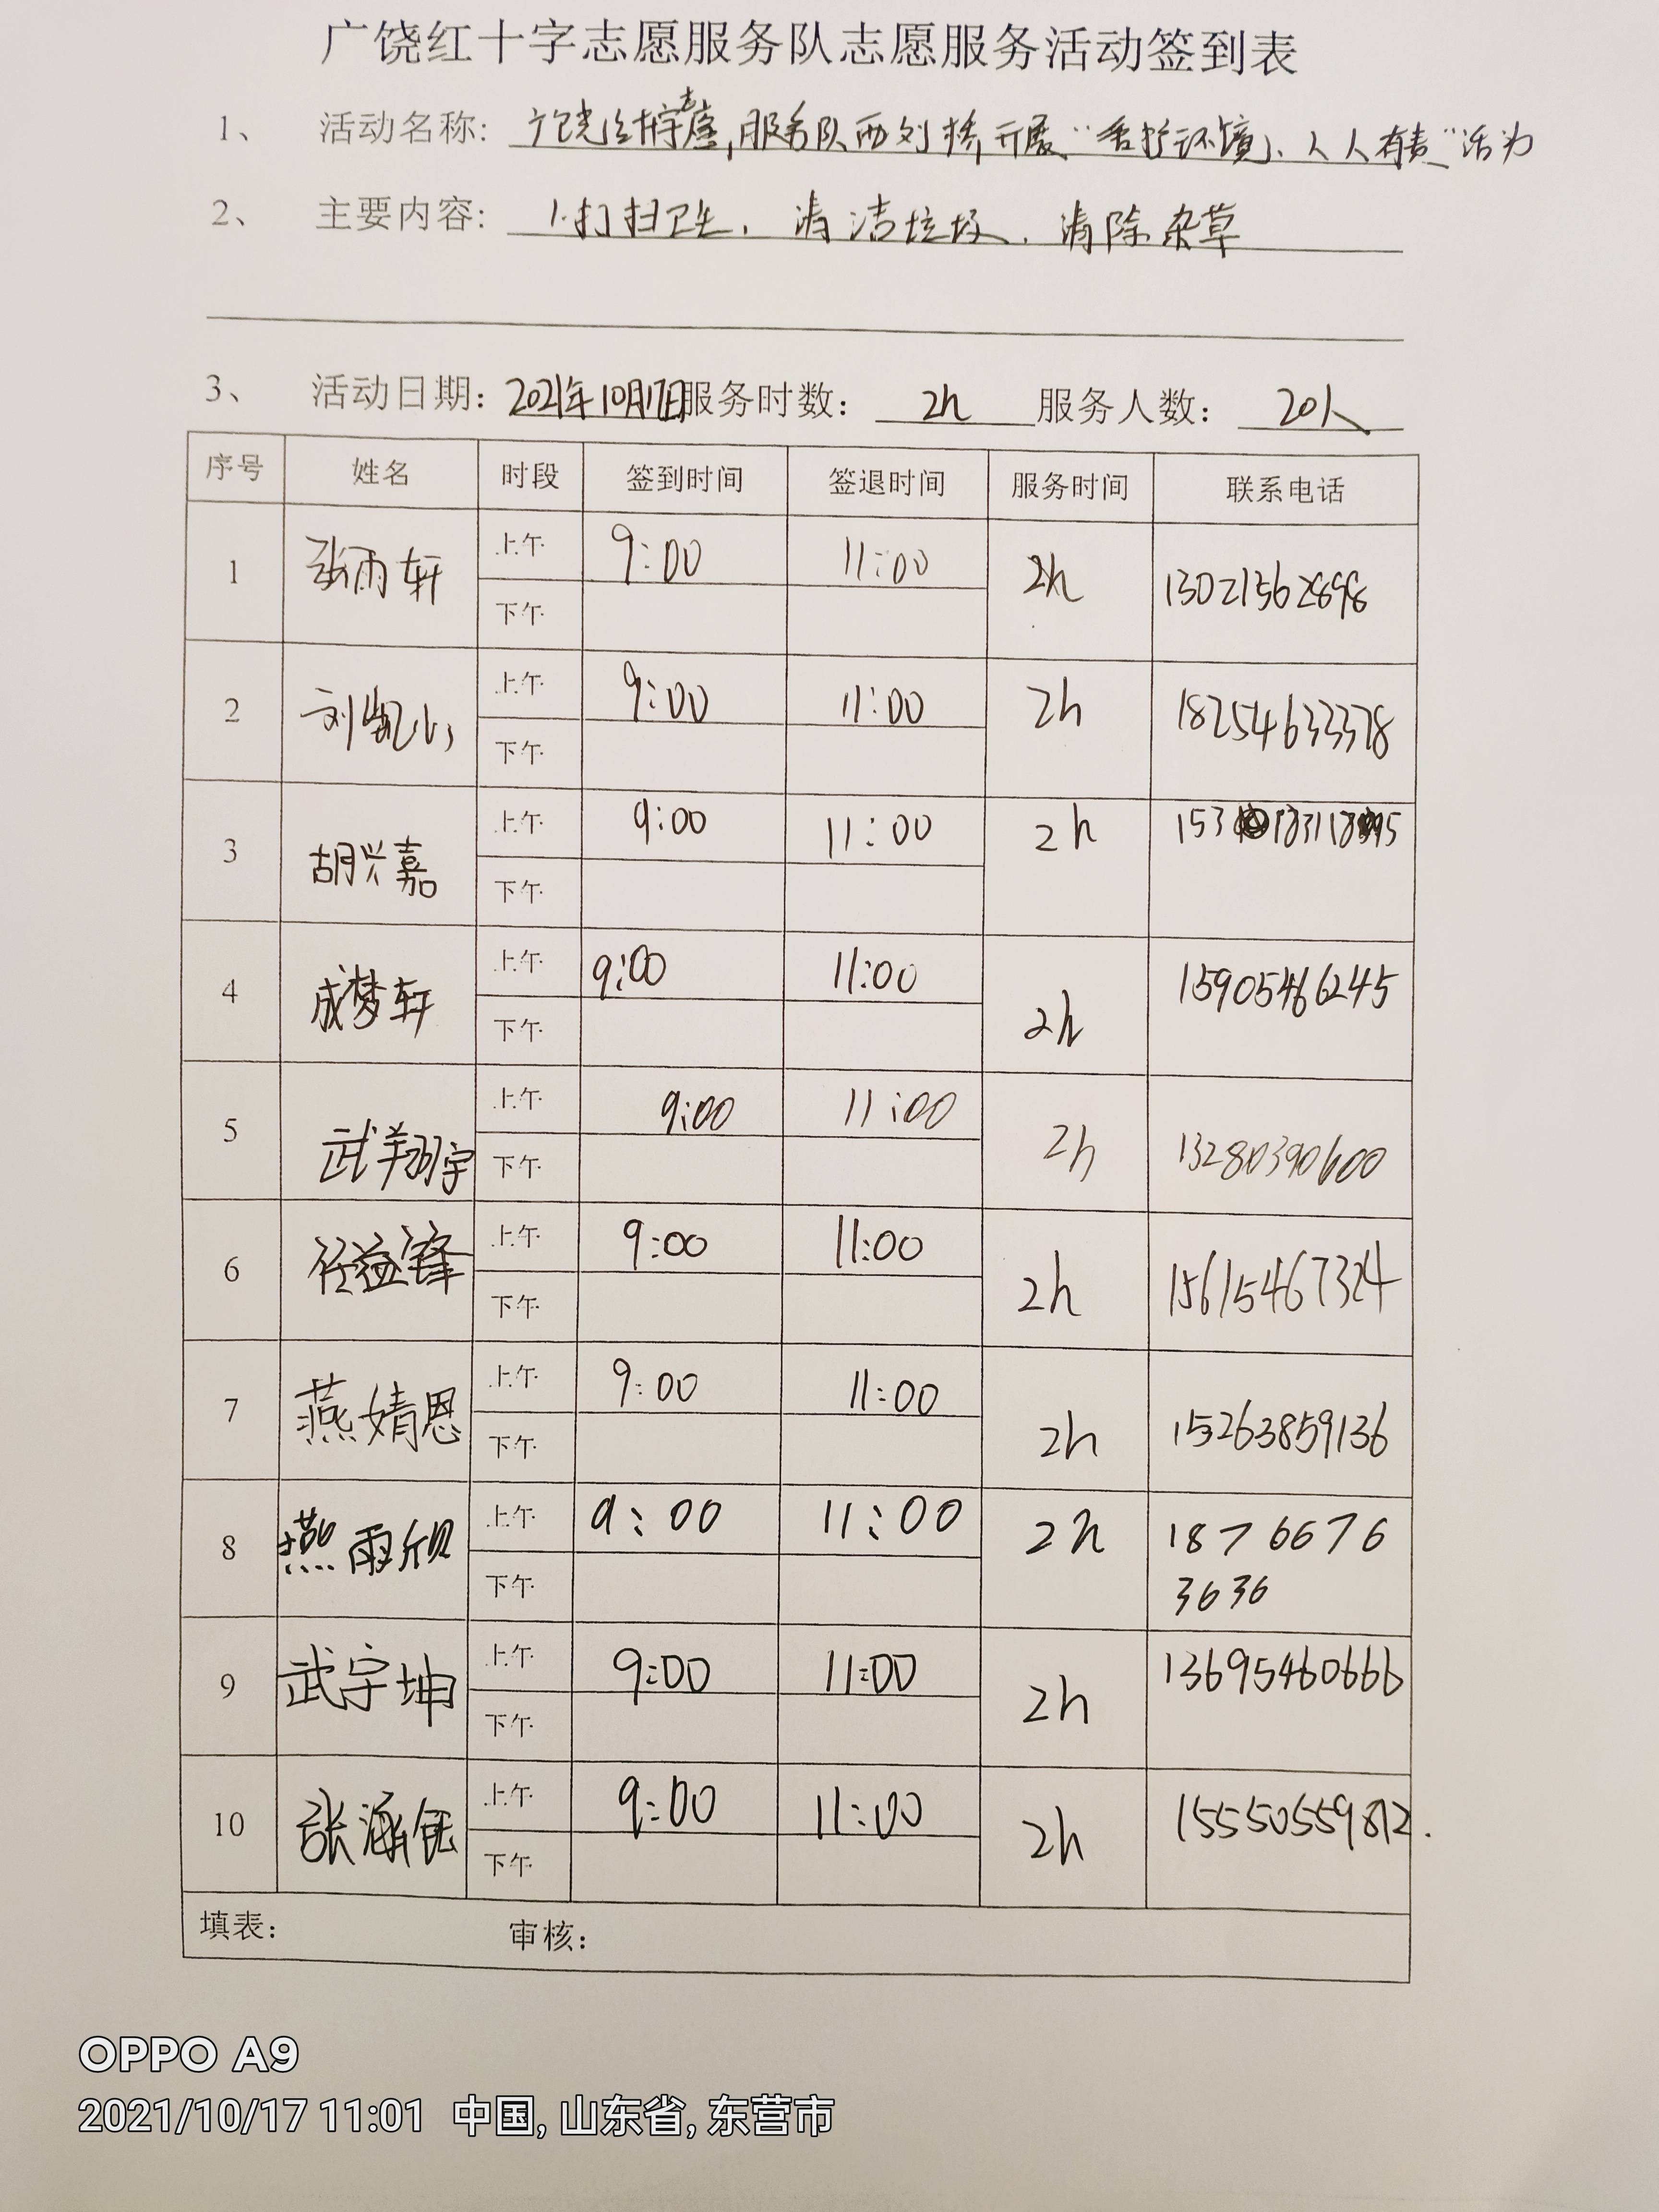 广饶红十字志愿服务队志愿服务活动签到表
1、 活动名称: 广饶红十字志愿服务队西刘桥开展“爱护环境、人人有责”活动
2、 主要内容: 1.打扫卫生、清洁垃圾、清除杂草
3、 活动日期: 2021年10月17日 服务时数: 2h 服务人数: 20人
序号 姓名 时段 签到时间 签退时间 服务时间 联系电话
1 张雨轩 上午 9:00 11:00 2h 13021562898
下午
2 刘凯 上午 9:00 11:00 2h 18254633378
下午
3 胡兴嘉 上午 9:00 11:00 2h
下午
4 成梦轩 上午 9:00 11:00 2h 15905466245
下午
5 武翔宇 上午 9:00 11:00 2h 13280390600
下午
6 任益锋 上午 9:00 11:00 2h 15615467324
下午
7 燕婧恩 上午 9:00 11:00 2h 15263859136
下午
8 燕雨欣 上午 9:00 11:00 2h 1876676
3636
下午
9 武宇坤 上午 9:00 11:00 2h 13695460666
下午
10 张涵钰 上午 9:00 11:00 2h 15550559812.
下午
填表: 审核:
OPPO A9
2021/10/17 11:01 中国, 山东省, 东营市